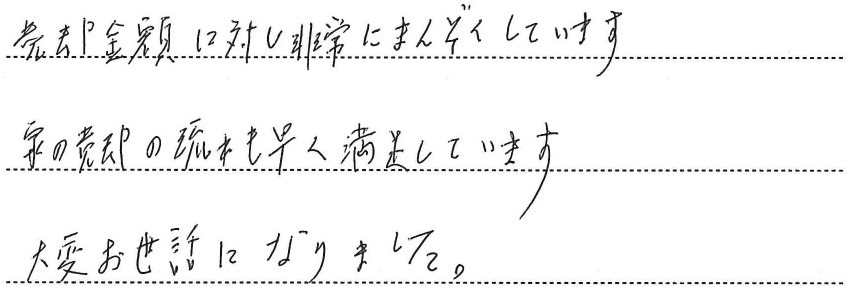 売却金額に対し非常にまんぞくしています
家の売却の流れも早く満足しています
大変お世話になりました。